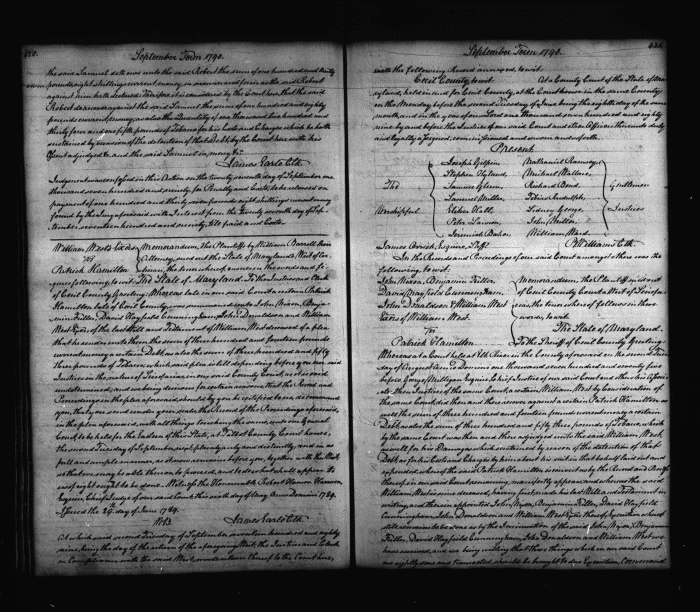 September Term 1790.
the said Samuel doth owe unto the said Robert the sum of one hundred and thirty
seven pounds eight shillings current money in manner and form as the said Robert
against him hath declared Therefore it is considered by the Court here that the said
Robert do recover against the said Samuel the sum of one hundred and eighty
pounds current money, as also the Quantity of one thousand two hundred and
thirty four and one fifth pounds of Tobacco for his Costs and Charges which he hath
sustained by reason of the detention of that Debt by the Court here with his
assent adjudged &c and the said Samuel in mercy &c
James Earle Clk
Judgment was confessed in this Action on the twenty seventh day of September one
thousand seven hundred and ninety for Penalty and Costs to be released on
payment of one hundred and thirty seven pounds eight shillings current money
found by the Jury aforesaid with Interest from the twenty seventh day of Sep-
tember seventeen hundred and ninety, till paid and Costs
William West's Exers
vs
Patrick Hamilton
Memorandum, The Plaintiffs by William Barroll their
Attorney sued out the State of Maryland's Writ of Cer-
tiorari, the tenor whereof ensues in the words and fi-
gures following to wit, The State of Maryland. To the Justices and Clerk
of Cecil County Greeting, Whereas late in our said County Court a certain Patrick
Hamilton late of Cecil County was summoned to answer unto John Nixon, Benja-
min Fuller, David Hayfield Conyngham, John Donaldson and William
West Exers of the last Will and Testament of William West deceased of a plea
that he render unto them the sum of three hundred and fourteen pounds
current money a certain Debt, as also the sum of three hundred and fifty
three pounds of Tobacco, which said plea is still depending before you our said
Justices
undetermined, and we being desirous for certain reasons that the Record and
Proceedings in the plea aforesaid should by you be certified to us, do command
you, that you send under your seals the Record of the Proceedings aforesaid,
in the plea aforesaid, with all things touching the same, unto our General
Court to be held for the Eastern Shore of this State, at Talbot County Court house,
the second Tuesday of September next, plainly and distinctly, and in as
full and ample manner as it now remains before you, together with this Writ,
so that we may be able thereon to proceed, and to do what shall appear to
us of right ought to be done. Witness the Honourable Robert Hanson Harrison,
Esquire Chief Judge of our said Court this sixth day of May Anno Domini 1789.
Issued the 29. day of June 1789.
James Earle Clk
At which said second Tuesday of September seventeen hundred and eighty
nine, being the day of the return of the aforegoing Writ, the Justices and Clerk
in Compliance with the said Writ, made return thereof to the Court here,
September Term 1790.
with the following Record annexed, to wit.
Cecil County to wit. At a County Court of the State of Mary-
land, held in and for Cecil County, at the Court house in the same County
on the Monday before the second Tuesday of June being the eighth day of the same
month, and in the year of our Lord one thousand seven hundred and eighty
nine by and before the Justices of our said Court and other Officers thereunto duly
and legally assigned, commissioned and sworn and so forth.
Present
The
Worshipful
Joseph Gilpin
Stephen Hyland
Samuel Glenn
Samuel Miller
Elisha Hall
Peter Lawson
Jeremiah Baker
Nathaniel Ramsey
Michael Wallace
Richard Bond
Tobias Rudulph
Sidney George
John Milton
William Ward
Gentlemen
Justices
Esquire Sheff
In the Records and Proceedings of our said Court amongst others was the
following to wit.
John Nixon, Benjamin Fuller,
David Hayfield Conyngham,
John Donaldson & William West
Exers of William West.
vs
Patrick Hamilton
Memorandum, The Plaintiffs sued out
of Cecil County Court a Writ of Scire fa-
cias, the tenor whereof follows in these
words, to wit
The State of Maryland.
To the Sheriff of Cecil County Greeting
Whereas at a Court held at Elk River in the County aforesaid on the second Tues-
day of August Anno Domini one thousand seven hundred and seventy five
before George Milligan Esquire Chief Justice of our said Court and other his Associ-
ates, then Justices of the same Court, a certain William West by Consideration of
the same Court did then and there recover against a certain Patrick Hamilton as
well the sum of three hundred and fourteen pounds current money a certain
Debt, as also the sum of three hundred and fifty three pounds of Tobacco, which
by the same Court was then and there adjudged unto the said William West,
as well for his Damages which sustained by reason of the detention of that
Debt, as for his Costs and Charges by him about his suit in that behalf laid out and
expended, whereof the said Patrick Hamilton is convict as by the Record and Process
thereof in our said Court remaining manifestly appears, and whereas the said
William West is since deceased, having first made his last Will and Testament in
writing, and therein appointed John Nixon, Benjamin Fuller, David Hayfield
Conyngham, John Donaldson and William West Exers thereof, Execution whereof
still remains to be done as by the Insinuation of the said John Nixon, Benjamin
Fuller, David Hayfield Conyngham, John Donaldson and William West we
have received, and we being willing that those things which in our said Court
are rightly done and transacted, should be brought to due Execution, Command